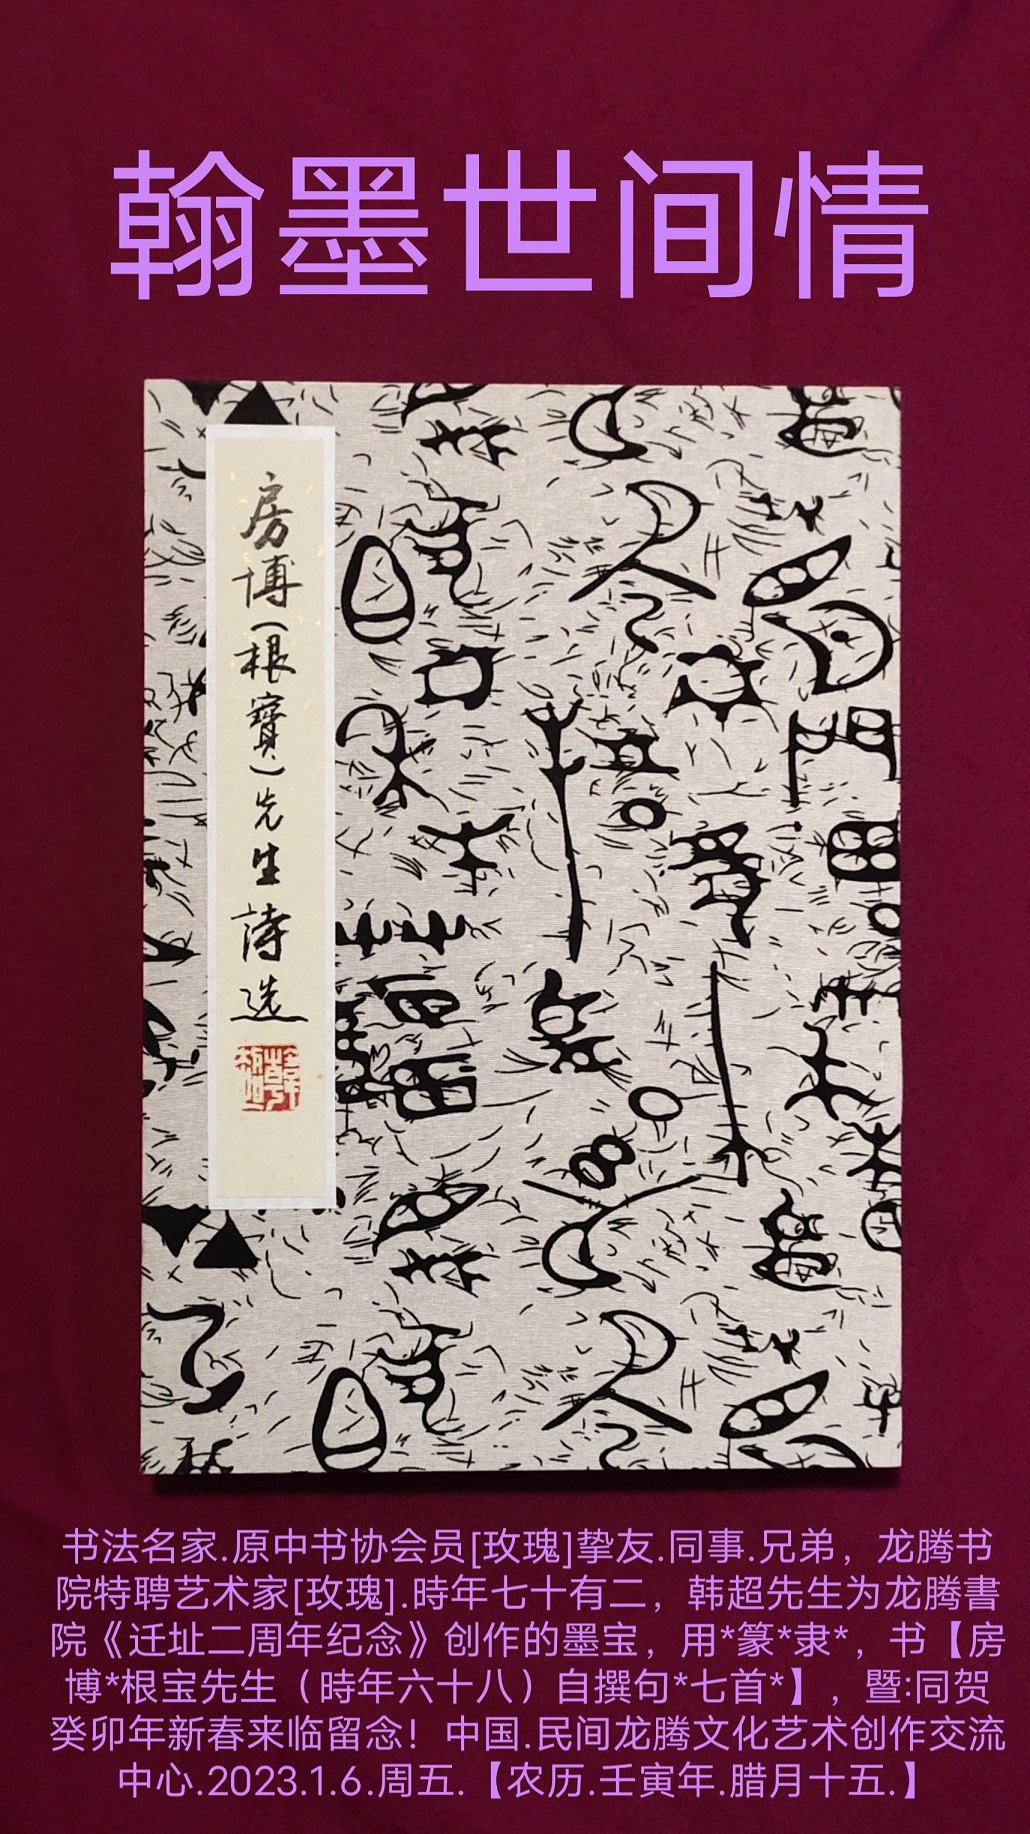 翰墨世间情
房博(根寳)先生詩选
书法名家.原中书协会员[玫瑰]挚友.同事.兄弟，龙腾书
院特聘艺术家[玫瑰].時年七十有二，韩超先生为龙腾書
院《迁址二周年纪念》创作的墨宝，用*篆*隶*，书【房
博*根宝先生（時年六十八）自撰句*七首*】，暨:同贺
癸卯年新春来临留念！中国.民间龙腾文化艺术创作交流
中心.2023.1.6.周五.【农历.壬寅年.腊月十五.】